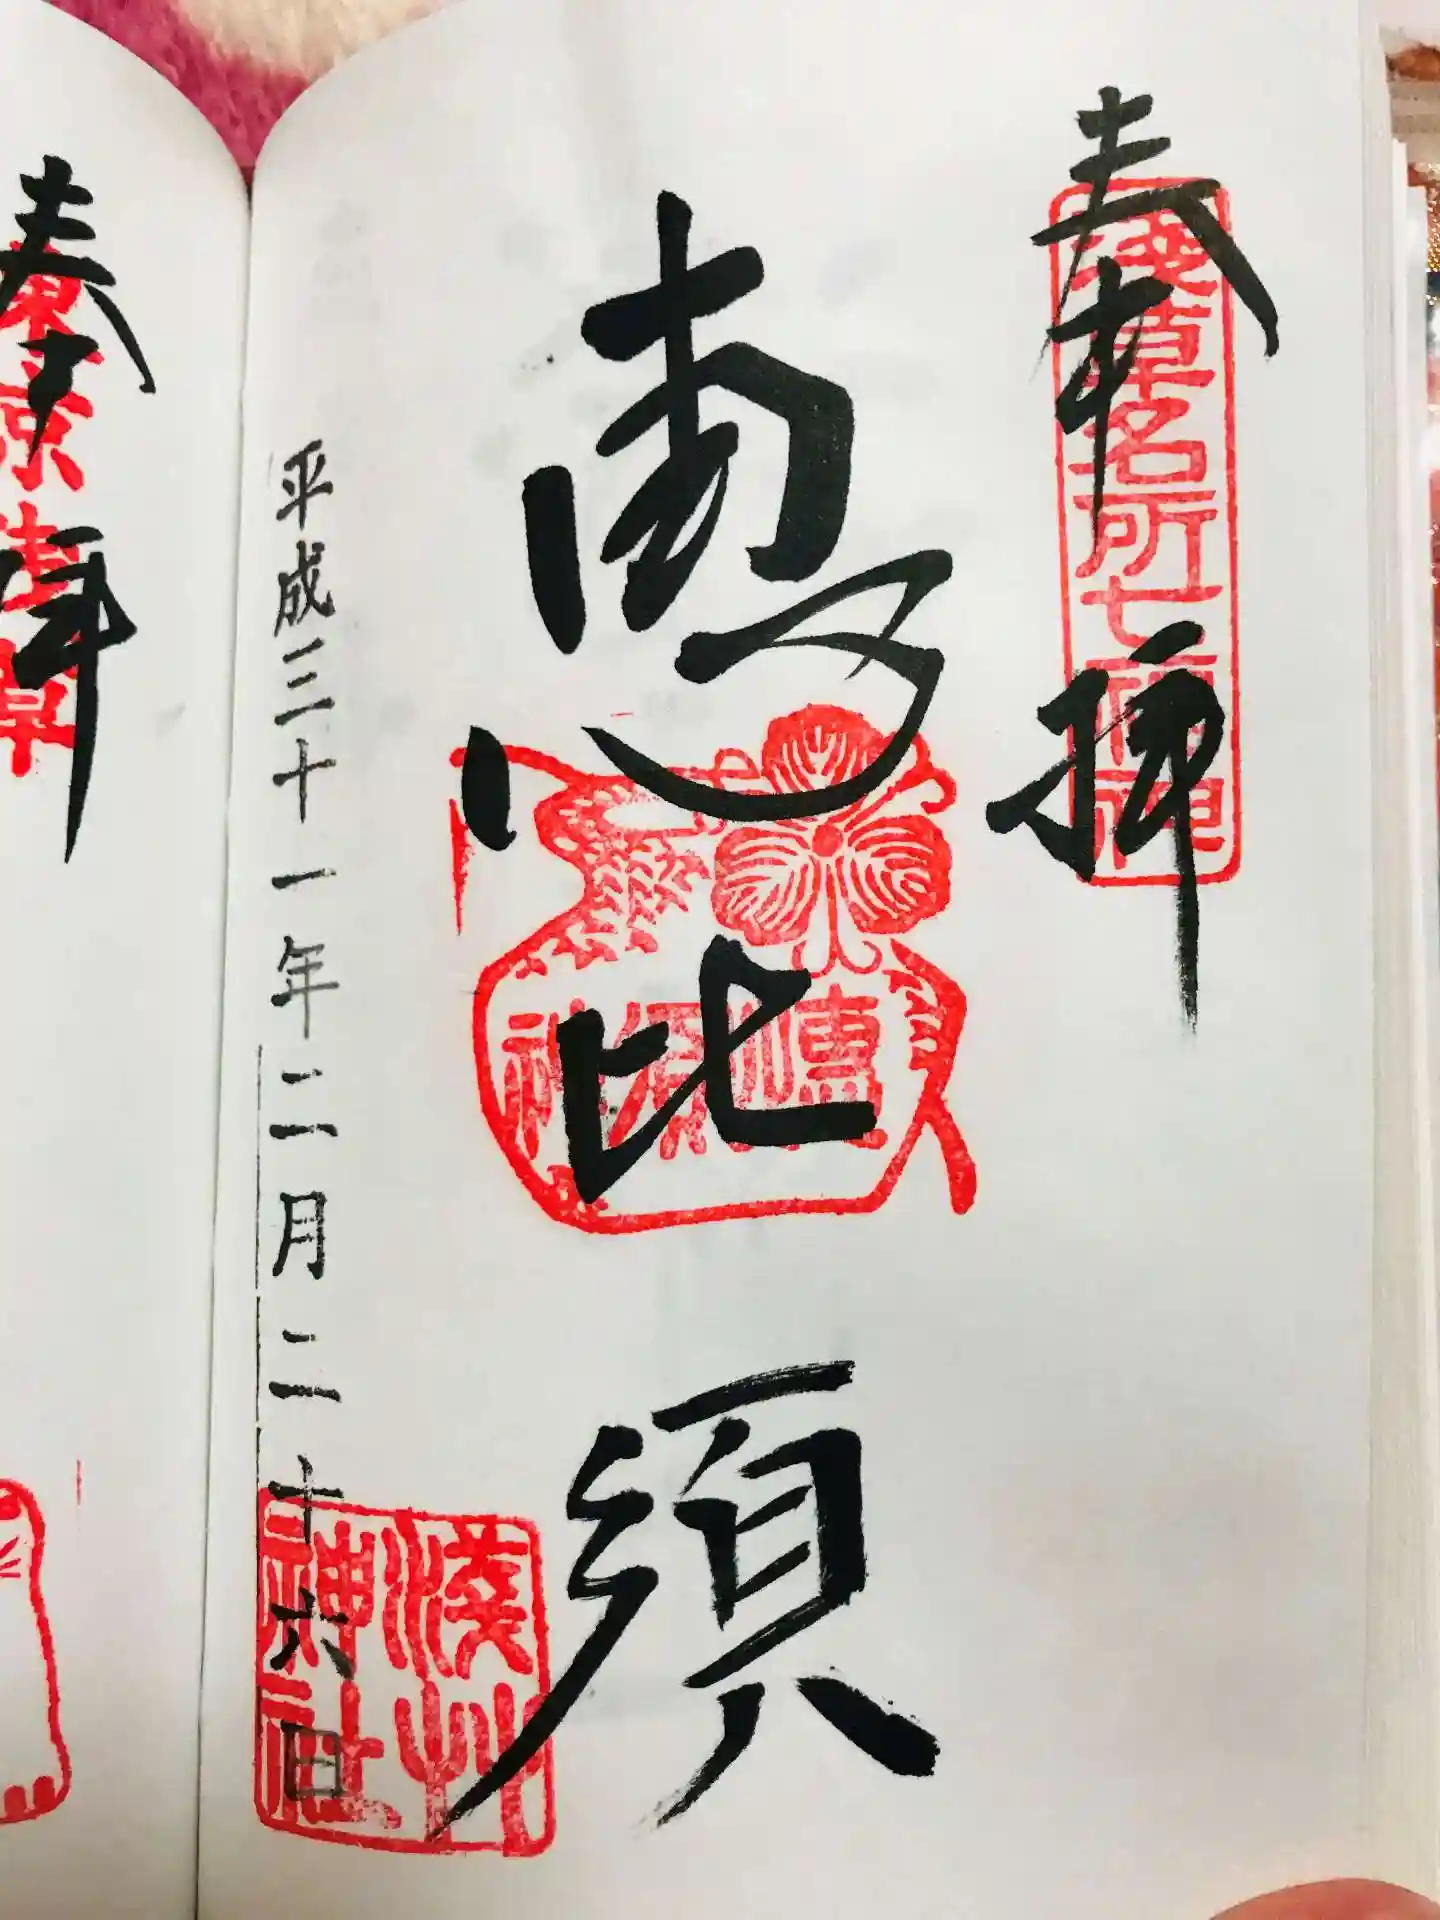 奉拝
浅草名所七福神
恵比須
平成三十一年二月二十六日
浅草
神社
奉拝
東京浅草